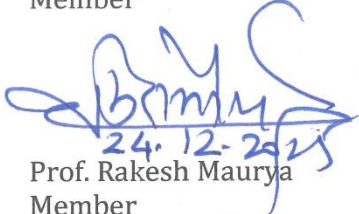 Member
24.12.2025
Prof. Rakesh Maurya
Member